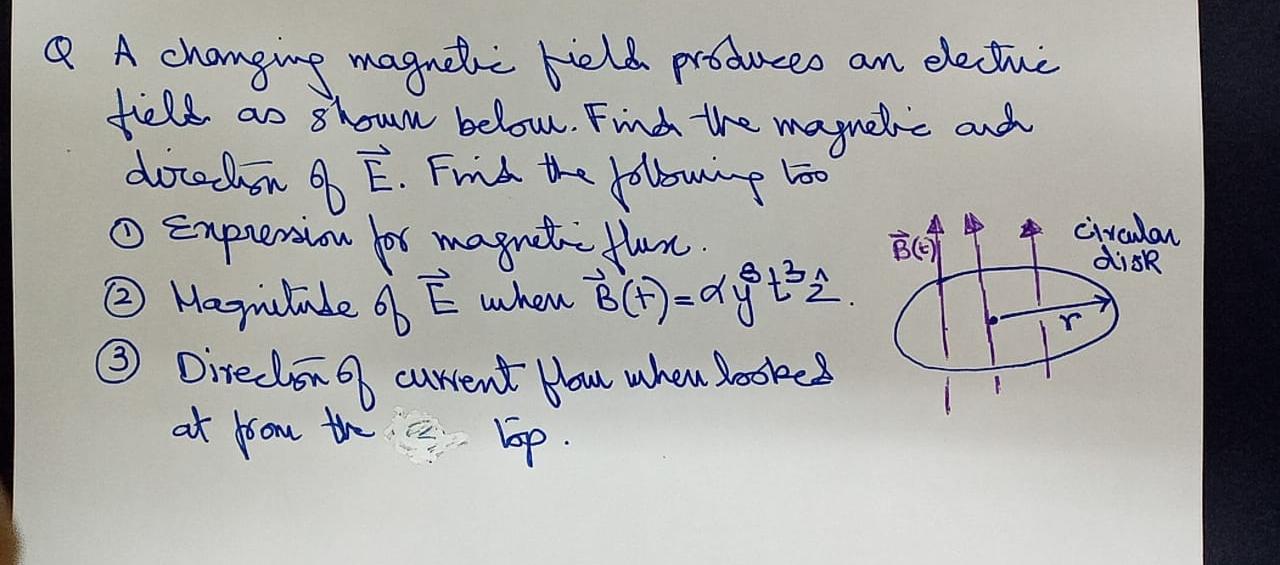 Q A changing magnetic field produces an electric
field as shown below. Find the magnetic and
direction of E⃗. Find the following too
① Expression for magnetic flux.
② Magnitude of E⃗ when B⃗(t)=αy⁸t³ẑ.
③ Direction of current flow when looked
at from the top.
B⃗(t)
circular
disk
r